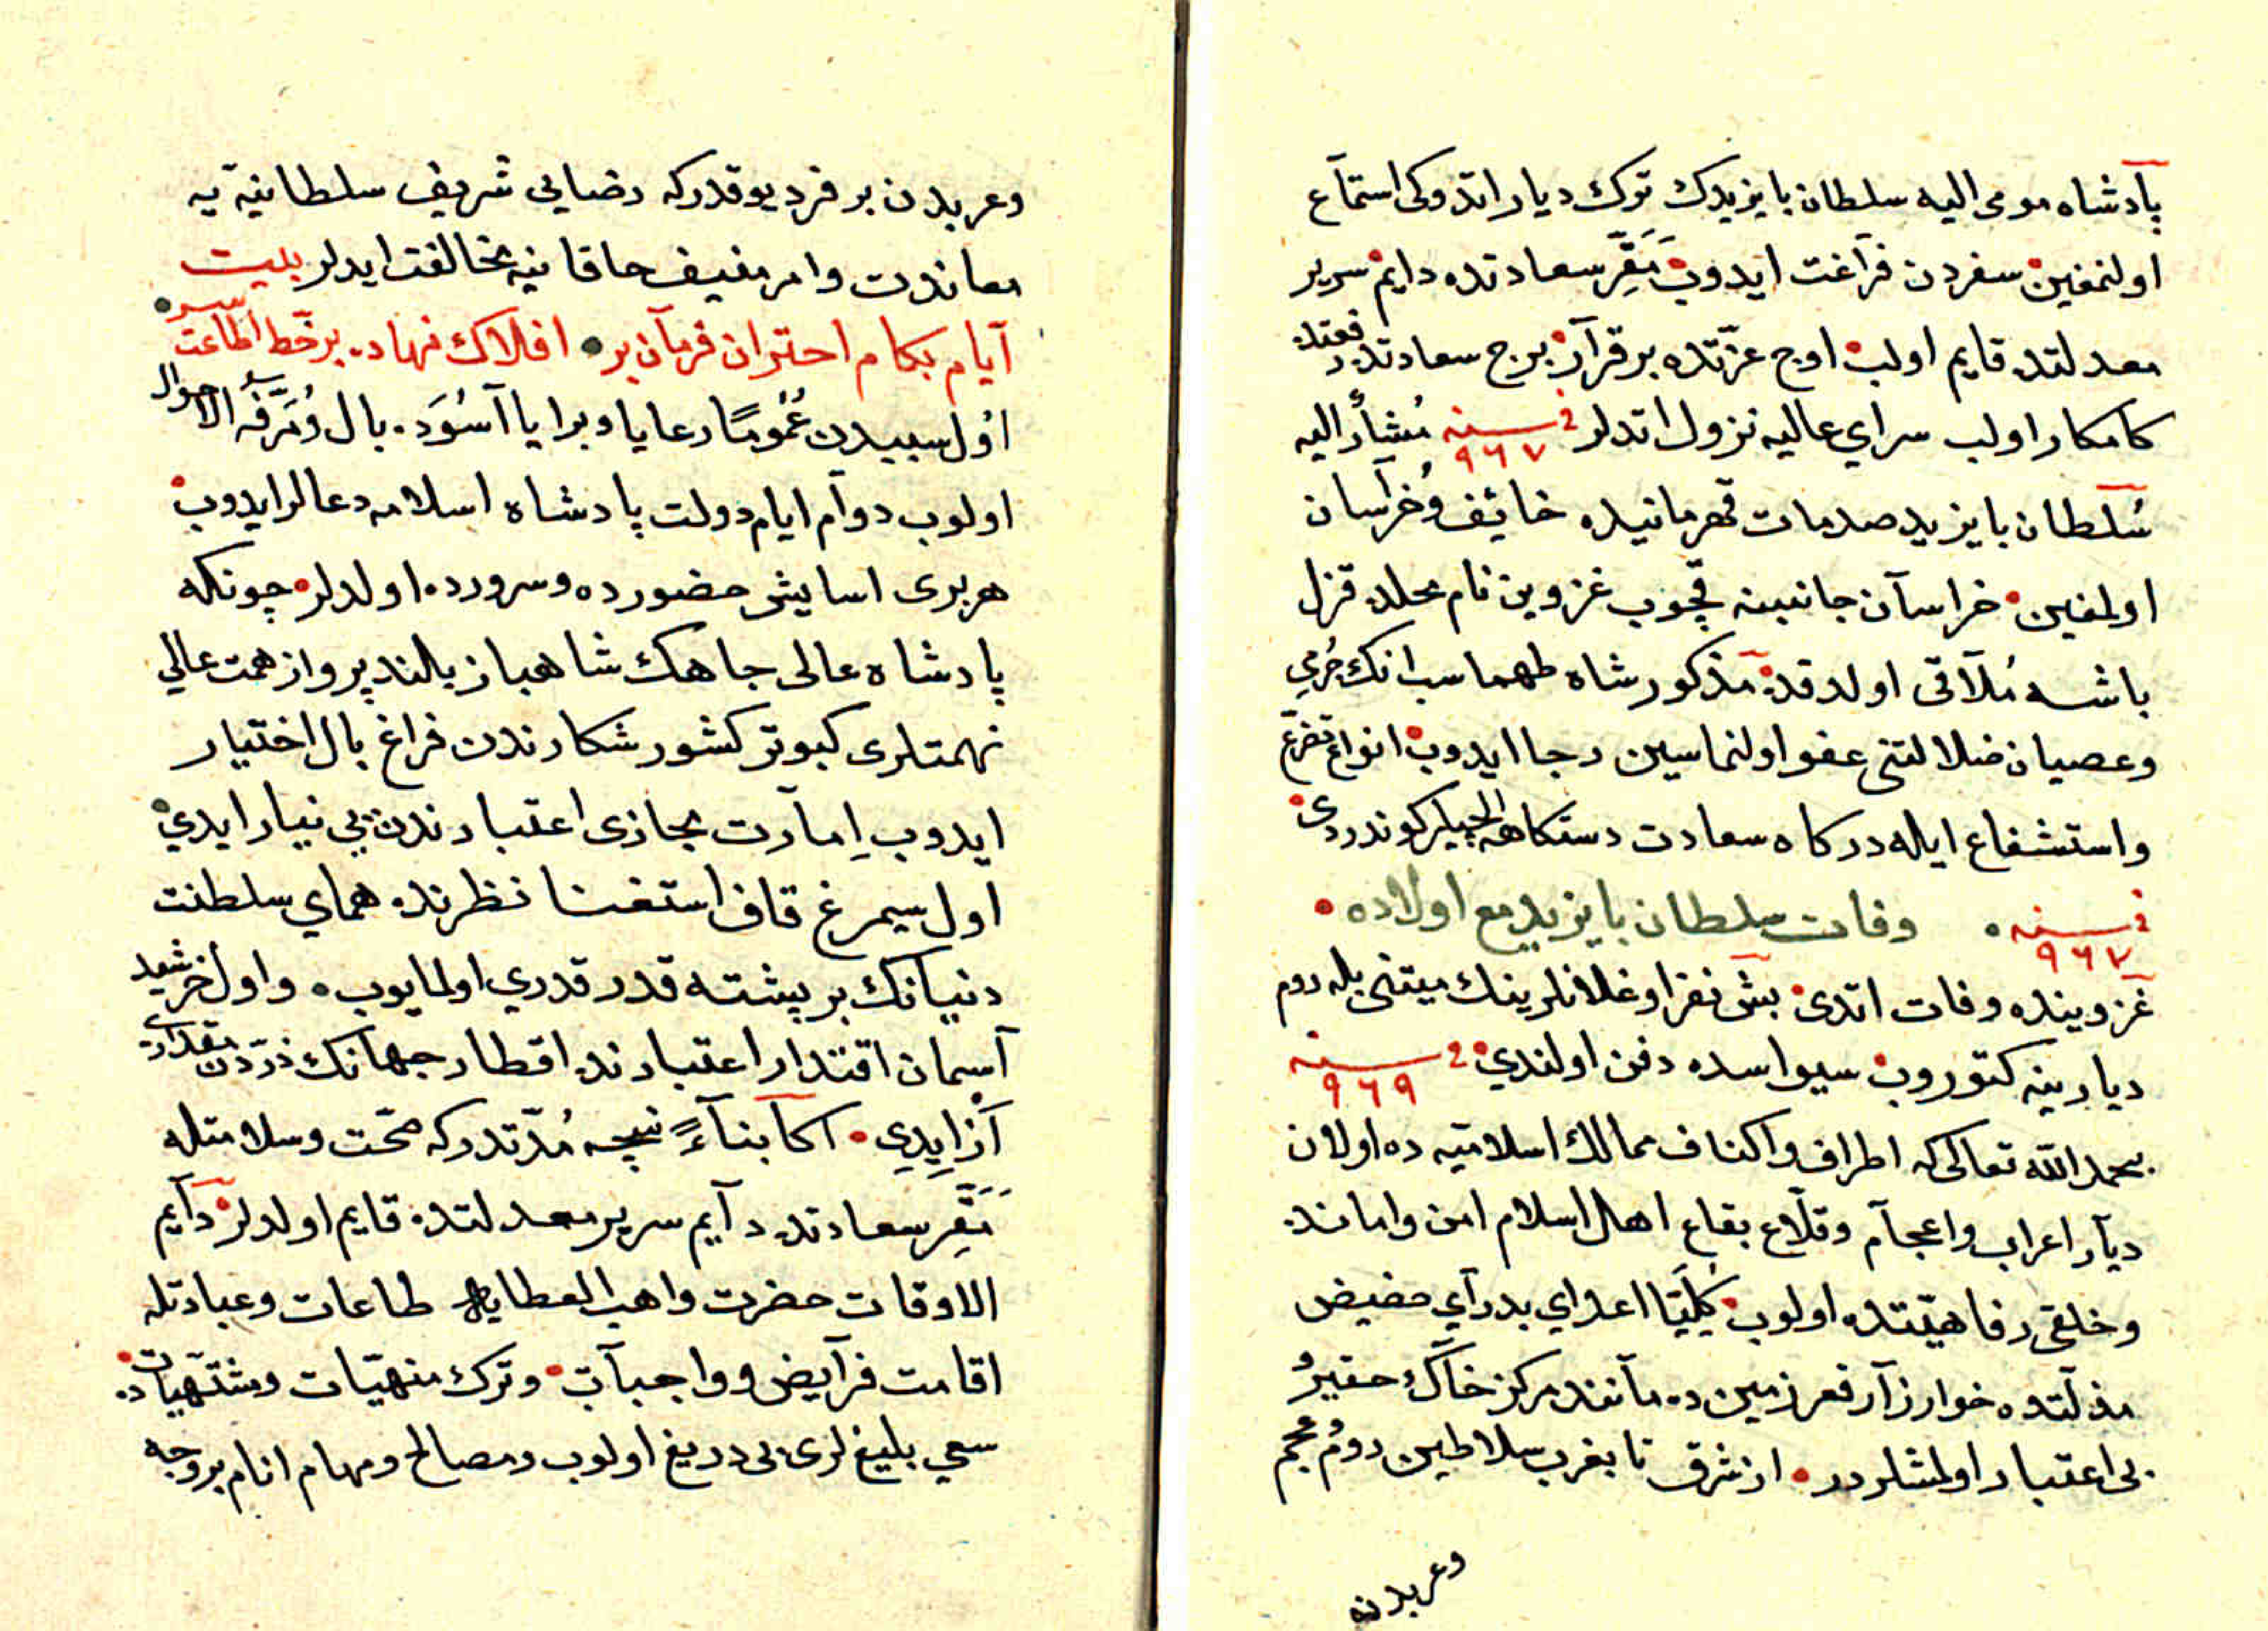 پادشاه مومی الیه سلطان بایزیدك ترك دیار اتدوکی استماع
اولنمغین سفردن فراغت ایدوب مقر سعادتده دایم سریر
معدلتده قایم اولب اوج عزتده برقرار برج سعادتده رفعتله
کامکار اولب سرای عالیه نزول اتدلر فی سنه ٩٦٧ مشار الیه
سلطان بایزید صدمات قهرمانیده خائف وخراسان
اولمغین خراسان جانبینه قچوب غزوین نام محلده قزل
باشه ملاقی اولدقده مذکور شاه طهماسب انك جرمی
وعصیان ضلالتنی عفو اولنماسین رجا ایدوب انواع تضرع
واستشفاع ایله درکاه سعادت دستکاهه ایلچیلر کوندردی
فی سنه ٩٦٧ وفات سلطان بایزید مع اولاده
غزوینده وفات اتدی بش نفر اوغلانلرینك میتنی بله روم
دیارینه کتوروب سیواسده دفن اولندی فی سنه ٩٦٩
بحمد الله تعالی که اطراف واکناف ممالك اسلامیه ده اولان
دیار اعراب واعجام وقلاع بقاع اهل اسلام امن وامانده
وخلقی رفاهیتده اولوب کلیا اعدای بدرای حضیض
مذلتده خوار زار قعر زمین ده مانند مرکز خاك حقیر و
بی اعتبار اولمشلردر از شرق تا بغرب سلاطین روم وعجم
وعربدن
وعربدن بر فرد یوقدرکه رضایی شریف سلطانیه یه
معاندت وامر منیف خاقانیه مخالفت ایدلر بیت
آیام بکام اختران فرمان بر افلاك نهاده بر خط اطاعت سر
اول سببدن عموما رعایا وبرایا آسوده بال ومرفه الاحوال
اولوب دوام ایام دولت پادشاه اسلامه دعالر ایدوب
هر بری اسایش حضورده وسرورده اولدلر چونکه
پادشاه عالی جاهك شاهباز بلند پرواز همت عالی
نهمتلری کبوتر کشور شکارندن فراغ بال اختیار
ایدوب امارت مجازی اعتبارندن بی نیاز ایدی
اول سیمرغ قاف استغنا نظرنده همای سلطنت
دنیانك بر پشته قدر قدری اولمایوب واول خرشید
آسمان اقتدار اعتبارنده اقطار جهانك ذره دن مقداری
از ایدی اکا بناء نیچه مدتدرکه صحت وسلامتله
مقر سعادتده دآیم سریر معدلتده قایم اولدلر دآیم
الاوقات حضرت واهب العطایایه طاعات وعبادتله
اقامت فرآیض و واجبات وترك منهیات ومشتهیات ده
سعی بلیغ لری بی دریغ اولوب ومصالح ومهام انام بر وجه